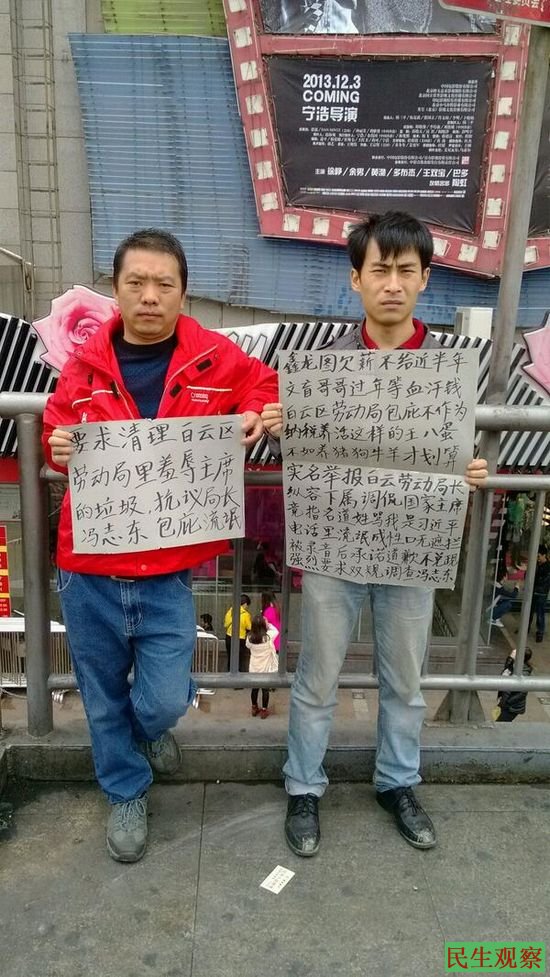 2013.12.3
COMING
宁浩导演
主演 徐峥/余男/黄渤/多布杰/王双宝/巴多
陶虹
要求清理白云区
劳动局里羞辱主席
的垃圾,抗议局长
冯志东包庇流氓
鑫龙图欠薪不给近半年
文盲哥哥过年等血汗钱
白云区劳动局包庇不作为
纳税养活这样的王八蛋
不如养猪狗牛羊才划算
实名举报白云劳动局长
纵容下属调侃国家主席
竟指名道姓骂我是习近平
电话里流氓成性口无遮拦
被录音后承诺道歉不兑现
强烈要求双规调查冯志东
民生观察